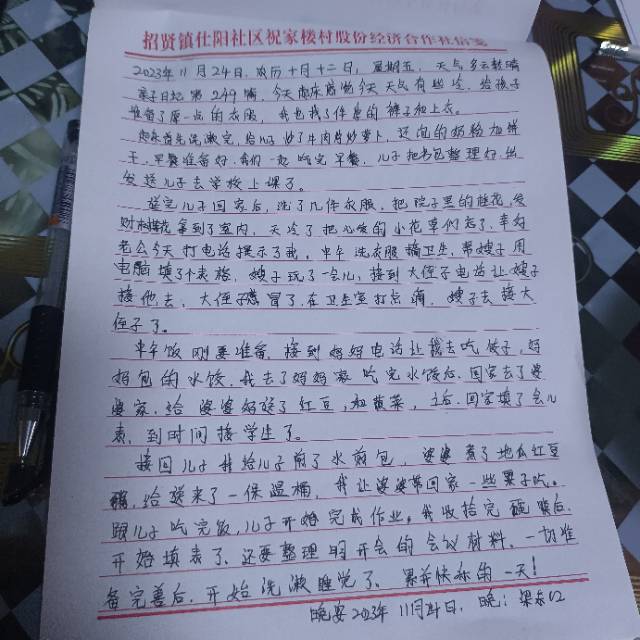 招贤镇仕阳社区祝家楼村股份经济合作社信笺
2023年11月24日,农历十月十二日,星期五,天气多云转晴
亲子日记第249篇,今天起床感觉今天天气有些冷,给孩子
准备了厚一点的衣服,我也找了件厚的裤子和上衣。
起床首先洗漱完,给儿子炒了牛肉片炒萝卜,还泡的奶粉加饼
干,早餐准备好,我们一起吃完早餐,儿子把书包整理好,出
发送儿子去学校上课了。
送完儿子回家后,洗了几件衣服,把院子里的桂花,发
财树搬花拿到了室内,天冷了把心爱的小花草们忘了,幸好
老公今天打电话提示了我。中午洗衣服搞卫生,帮嫂子用
电脑填了个表格,嫂子玩了一会儿,接到大侄子电话让嫂子
接他去,大侄子感冒了,在卫生室打点滴,嫂子去接大
侄子了。
中午饭刚要准备,接到妈妈电话让我去吃饺子,妈
妈包的水饺,我去了妈妈家吃完水饺后,回家去了婆
婆家,给婆婆奶送了红豆,和菠菜,之后,回家填了会儿
表,到时间接学生了。
接回儿子我给儿子煎了水煎包,婆婆煮了地瓜红豆
粥,给送来了一保温桶,我让婆婆带回家一些栗子吃。
跟儿子吃完饭,儿子开始完成作业。我收拾完碗筷后,
开始填表了,还要整理明开会的会议材料,一切准
备完善后,开始洗漱睡觉了,累并快乐的一天!
晚安2023年11月24日,晚: